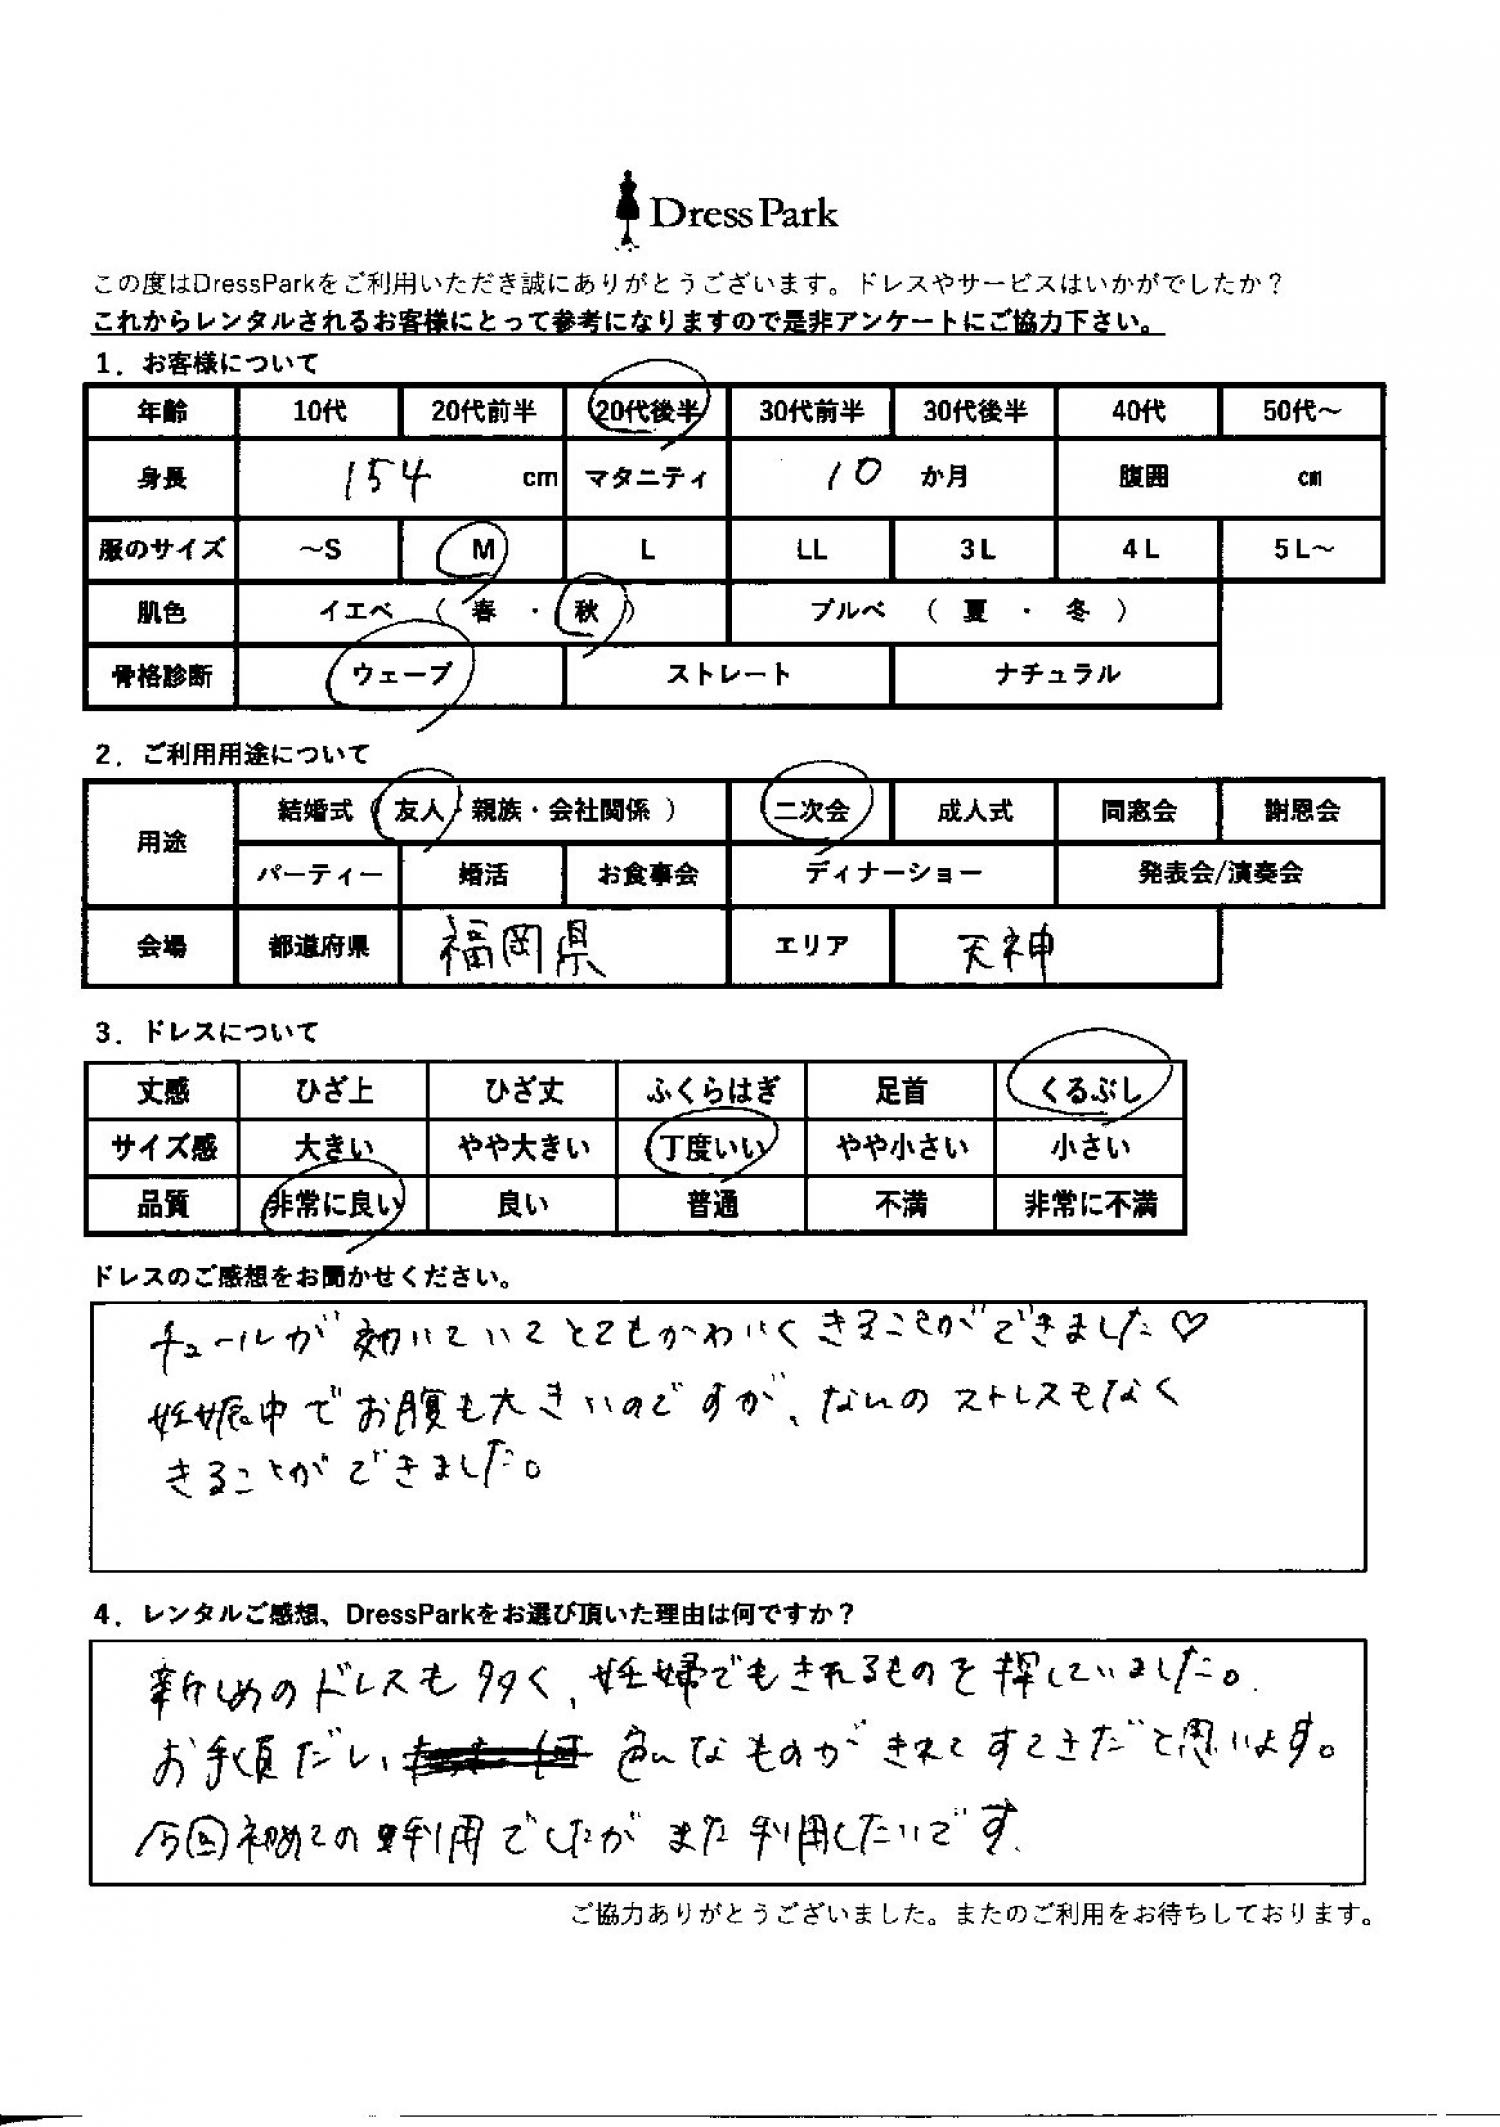 Dress Park
この度はDressParkをご利用いただき誠にありがとうございます。ドレスやサービスはいかがでしたか？
これからレンタルされるお客様にとって参考になりますので是非アンケートにご協力下さい。
1．お客様について
年齢 10代 20代前半 20代後半 30代前半 30代後半 40代 50代～
身長 154 cm マタニティ 10 か月 腹囲 cm
服のサイズ ～S M L LL 3L 4L 5L～
肌色 イエベ （ 春 ・ 秋 ） ブルベ （ 夏 ・ 冬 ）
骨格診断 ウェーブ ストレート ナチュラル
2．ご利用用途について
用途 結婚式（ 友人・親族・会社関係 ） 二次会 成人式 同窓会 謝恩会
パーティー 婚活 お食事会 ディナーショー 発表会/演奏会
会場 都道府県 福岡県 エリア 天神
3．ドレスについて
丈感 ひざ上 ひざ丈 ふくらはぎ 足首 くるぶし
サイズ感 大きい やや大きい 丁度いい やや小さい 小さい
品質 非常に良い 良い 普通 不満 非常に不満
ドレスのご感想をお聞かせください。
チュールが効いていてとてもかわいくきることができました♡
妊娠中でお腹も大きいのですが、なんのストレスもなく
きることができました。
4．レンタルご感想、DressParkをお選び頂いた理由は何ですか？
新しめのドレスも多く、妊婦でもきれるものを探していました。
お手頃だし、色んなものがきれてすてきだと思います。
今回初めての利用でしたがまた利用したいです.
ご協力ありがとうございました。またのご利用をお待ちしております。